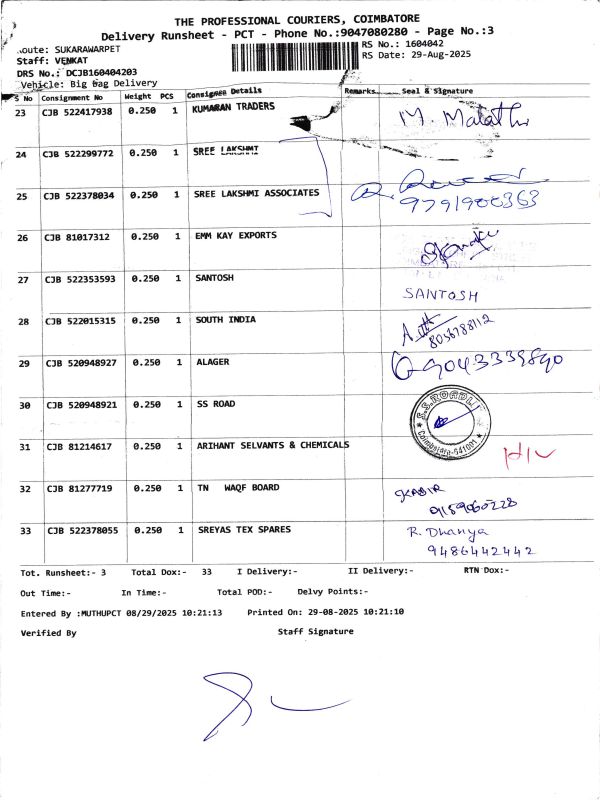 THE PROFESSIONAL COURIERS, COIMBATORE
Delivery Runsheet - PCT - Phone No.:9047080280 - Page No.:3
Route: SUKARAWARPET RS No.: 1604042
Staff: VENKAT RS Date: 29-Aug-2025
DRS No.: DCJB160404203
Vehicle: Big Bag Delivery
S No Consignment No Weight PCS Consignee Details Remarks Seal & Signature
23 CJB 522417938 0.250 1 KUMARAN TRADERS M. Malathi
24 CJB 522299772 0.250 1 SREE LAKSHMI
25 CJB 522378034 0.250 1 SREE LAKSHMI ASSOCIATES
9791900363
26 CJB 81017312 0.250 1 EMM KAY EXPORTS
27 CJB 522353593 0.250 1 SANTOSH SANTOSH
28 CJB 522015315 0.250 1 SOUTH INDIA
8056788112
29 CJB 520948927 0.250 1 ALAGER 9043339890
30 CJB 520948921 0.250 1 SS ROAD
31 CJB 81214617 1 ARIHANT SELVANTS & CHEMICALS
32 CJB 81277719 0.250 1 TN WAQF BOARD KABIR
9159060228
33 CJB 522378055 0.250 1 SREYAS TEX SPARES R. Dhanya
9486442442
Tot. Runsheet:- 3 Total Dox:- 33 I Delivery:- II Delivery:- RTN Dox:-
Out Time:- In Time:- Total POD:- Delvy Points:-
Entered By :MUTHUPCT 08/29/2025 10:21:13 Printed On: 29-08-2025 10:21:10
Verified By Staff Signature